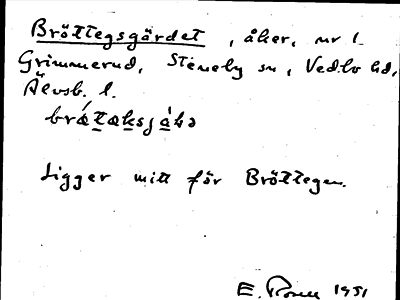 Bröttegsgärdet, åker, nr 1.
Grimmerud, Steneby sn, Vedbo hd,
Älvsb. l.
brǽtæksjáhə
Ligger mitt för Bröttegen.
E. Rosell 1951